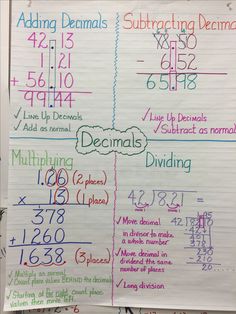 Adding Decimals
42.13
1.21
+ 56.10
99.44
✓ Line Up Decimals
✓ Add as normal
Subtracting Decimals
- 6.52
65.98
✓ Line Up Decimals
✓ Subtract as normal
Decimals
Multiplying
1.26 (2 places)
x 13 (1 place)
378
+1260
1.638 (3 places)
✓ Multiply as normal
✓ Count place values BEHIND the decimals
✓ Starting at far right, count place
values then move left
Dividing
✓ Move decimal
in divisor to make
a whole number
✓ Move decimal in
dividend the same
number of places
✓ Long division
378
-210